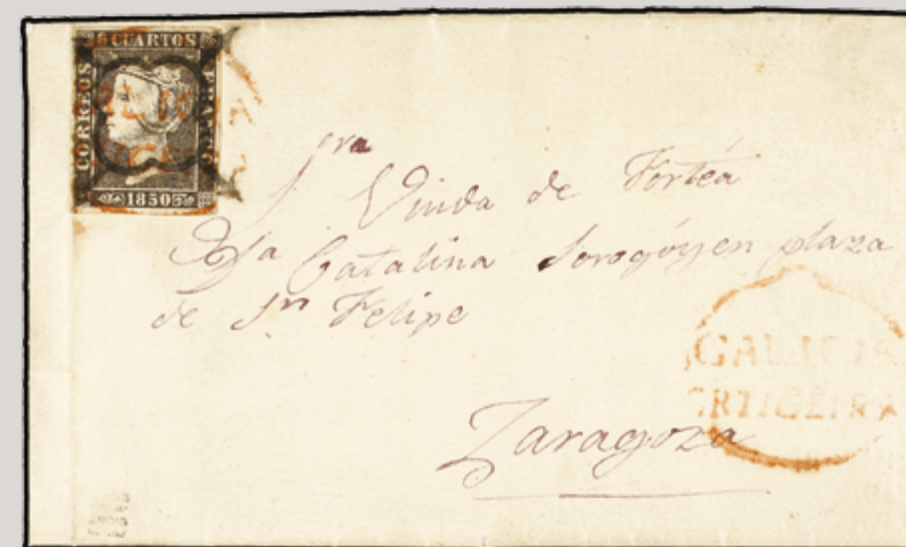 6 CUARTOS
CORREOS
FRANCO
1850
Sra
Viuda de Fortéa
Dª Catalina Sorogóyen plaza
de Sn Felipe
Zaragoza
GALICIA